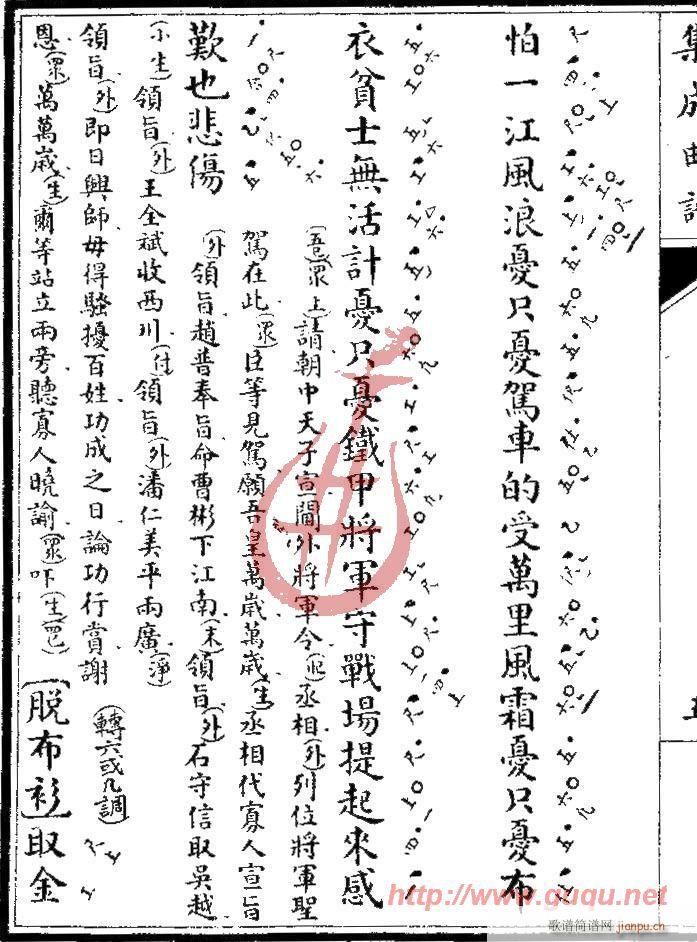 集成曲譜
怕一江風浪憂只憂駕車的受萬里風霜憂只憂布
衣貧士無活計憂只憂鐵甲將軍守戰場提起來感
歎也悲傷
(衆上)請朝中天子宣閫外將軍令 丞相(外)列位將軍聖
駕在此(衆)臣等見駕願吾皇萬歲萬歲(生)丞相代寡人宣旨
(外)領旨趙普奉旨命曹彬下江南(末)領旨(外)石守信取吳越
(小生)領旨(外)王全斌收西川(付)領旨(外)潘仁美平兩廣(淨)
領旨(外)即日興師毋得騷擾百姓功成之日論功行賞謝
恩(衆)萬萬歲(生)爾等站立兩旁聽寡人曉諭(衆)吓(生)
(轉六或凡調)
[脱布衫]取金
http://www.ququ.net
歌谱简谱网 jianpu.cn